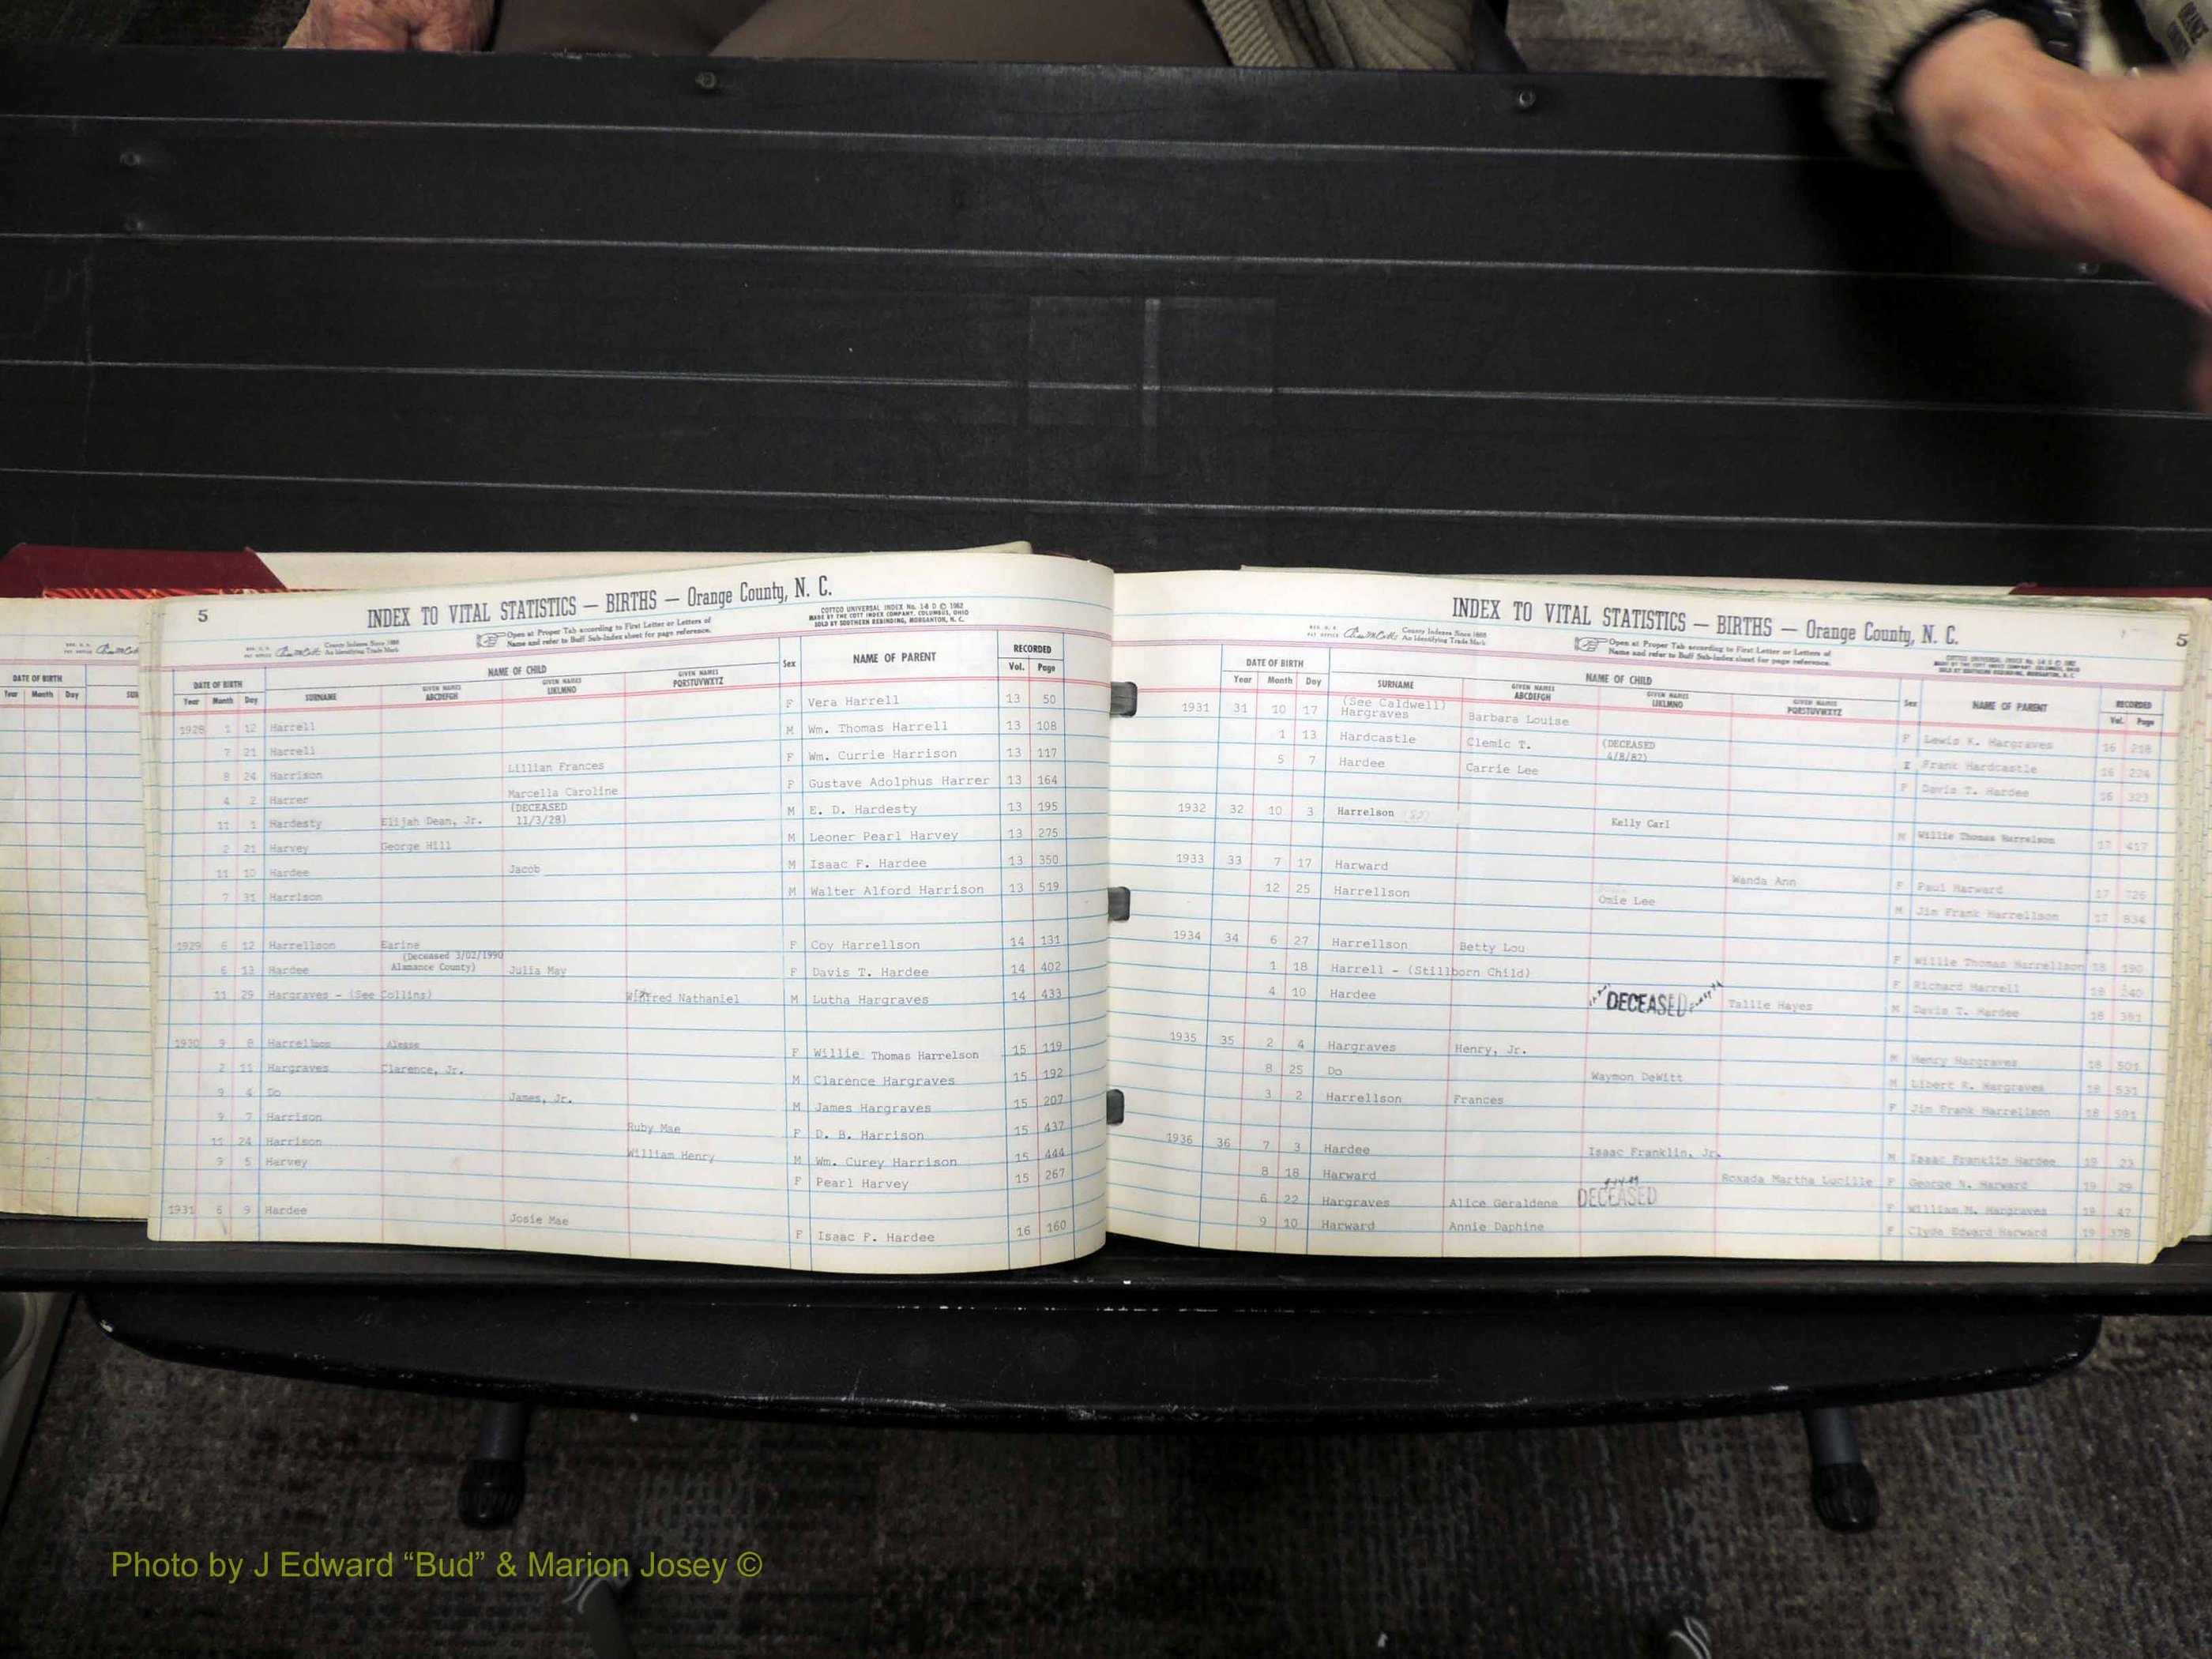 DATE OF BIRTH
Year Month Day SUR
5
INDEX TO VITAL STATISTICS — BIRTHS — Orange County, N. C.
County Indexes Since 1888
An Identifying Trade Mark
Open at Proper Tab according to First Letter or Letters of
Name and refer to Buff Sub-Index sheet for page reference.
COTTCO UNIVERSAL INDEX No. 1-8 D © 1962
MADE BY THE COTT INDEX COMPANY, COLUMBUS, OHIO
SOLD BY SOUTHERN REBINDING, MORGANTON, N. C.
DATE OF BIRTH NAME OF CHILD Sex NAME OF PARENT RECORDED
Year Month Day SURNAME GIVEN NAMES ABCDEFGH GIVEN NAMES IJKLMNO GIVEN NAMES PQRSTUVWXYZ Vol. Page
1928 1 12 Harrell F Vera Harrell 13 50
7 21 Harrell M Wm. Thomas Harrell 13 108
8 24 Harrison Lillian Frances F Wm. Currie Harrison 13 117
4 2 Harrer Marcella Caroline F Gustave Adolphus Harrer 13 164
11 1 Hardesty Elijah Dean, Jr. (DECEASED 11/3/28) M E. D. Hardesty 13 195
2 21 Harvey George Hill M Leoner Pearl Harvey 13 275
11 10 Hardee Jacob M Isaac F. Hardee 13 350
7 31 Harrison M Walter Alford Harrison 13 519
1929 6 12 Harrellson Earine F Coy Harrellson 14 131
(Deceased 3/02/1990
Alamance County)
6 13 Hardee Julia May F Davis T. Hardee 14 402
11 29 Hargraves - (See Collins) Winfred Nathaniel M Lutha Hargraves 14 433
1930 9 8 Harrellson Alease F Willie Thomas Harrelson 15 119
2 11 Hargraves Clarence, Jr. M Clarence Hargraves 15 192
9 4 Do James, Jr. M James Hargraves 15 207
9 7 Harrison Ruby Mae F D. B. Harrison 15 437
11 24 Harrison William Henry M Wm. Curey Harrison 15 444
9 5 Harvey F Pearl Harvey 15 267
1931 6 9 Hardee Josie Mae F Isaac F. Hardee 16 160
INDEX TO VITAL STATISTICS — BIRTHS — Orange County, N. C.
5
County Indexes Since 1888
An Identifying Trade Mark
Open at Proper Tab according to First Letter or Letters of
Name and refer to Buff Sub-Index sheet for page reference.
DATE OF BIRTH NAME OF CHILD Sex NAME OF PARENT RECORDED
Year Month Day SURNAME GIVEN NAMES ABCDEFGH GIVEN NAMES IJKLMNO GIVEN NAMES PQRSTUVWXYZ Vol. Page
(See Caldwell)
1931 31 10 17 Hargraves Barbara Louise F Lewis K. Hargraves 16 218
1 13 Hardcastle Clemic T. (DECEASED 4/8/82) Frank Hardcastle 16 224
5 7 Hardee Carrie Lee F Davis T. Hardee 16 323
1932 32 10 3 Harrelson Kelly Carl M Willie Thomas Harrelson 17 417
1933 33 7 17 Harward Wanda Ann F Paul Harward 17 726
12 25 Harrellson Omie Lee M Jim Frank Harrellson 17 834
1934 34 6 27 Harrellson Betty Lou F Willie Thomas Harrellson 18 190
1 18 Harrell - (Stillborn Child) F Richard Harrell 18 240
4 10 Hardee DECEASED Tallie Hayes M Davis T. Hardee 18 381
1935 35 2 4 Hargraves Henry, Jr. M Henry Hargraves 18 501
8 25 Do Waymon DeWitt M Libert R. Hargraves 18 531
3 2 Harrellson Frances F Jim Frank Harrellson 18 591
1936 36 7 3 Hardee Isaac Franklin, Jr. M Isaac Franklin Hardee 19 23
8 18 Harward Roxada Martha Lucille F George N. Harward 19 29
6 22 Hargraves Alice Geraldene DECEASED F William M. Hargraves 19 47
9 10 Harward Annie Daphine F Clyde Edward Harward 19 378
Photo by J Edward “Bud” & Marion Josey ©